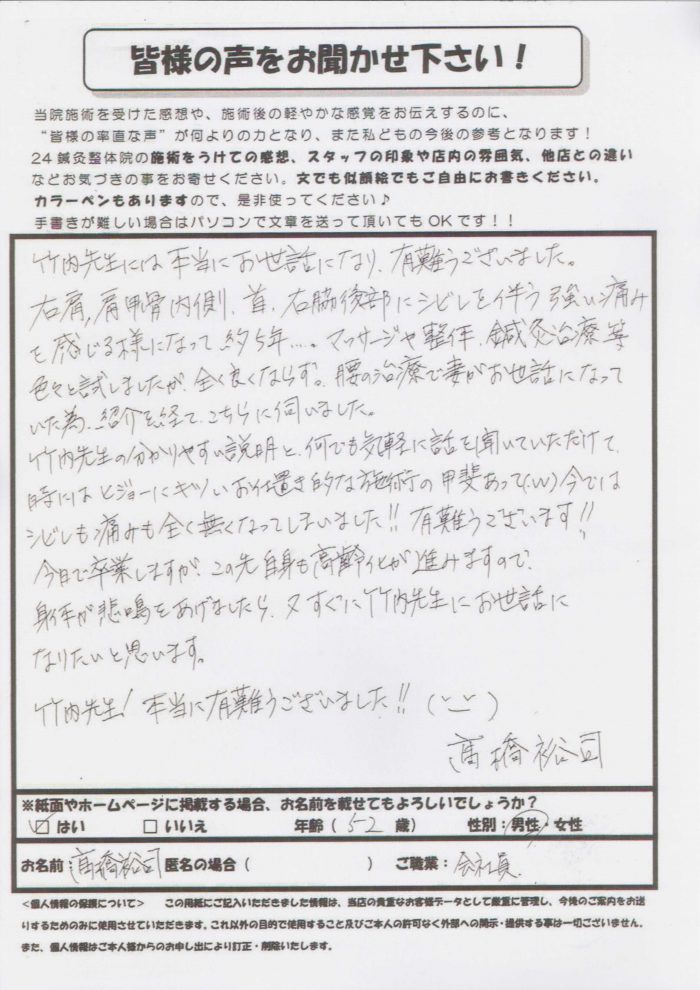 皆様の声をお聞かせ下さい！
当院施術を受けた感想や、施術後の軽やかな感覚をお伝えするのに、
“皆様の率直な声”が何よりの力となり、また私どもの今後の参考となります！
24鍼灸整体院の施術をうけての感想、スタッフの印象や店内の雰囲気、他店との違い
などお気づきの事をお寄せください。文でも似顔絵でもご自由にお書きください。
カラーペンもありますので、是非使ってください♪
手書きが難しい場合はパソコンで文章を送って頂いてもOKです！！
竹内先生には本当にお世話になり、有難うございました。
右肩、肩甲骨内側、首、右脇後部にシビレを伴う強い痛み
を感じる様になって約5年…。マッサージや整体、鍼灸治療等
色々と試しましたが、全く良くならず。腰の治療で妻がお世話になって
いた為、紹介を経て、こちらに伺いました。
竹内先生の分かりやすい説明と、何でも気軽に話を聞いていただけて、
時にはヒジョーにキツいお仕置き的な施術の甲斐あって(.w)今では
シビレも痛みも全く無くなってしまいました!! 有難うございます!!
今日で卒業しますが、この先自身も高齢化が進みますので、
身体が悲鳴をあげましたら、又すぐに竹内先生にお世話に
なりたいと思います。
竹内先生! 本当に有難うございました!!
髙橋裕司
※紙面やホームページに掲載する場合、お名前を載せてもよろしいでしょうか？
☑ はい □ いいえ 年齢（52 歳） 性別：男性・女性
お名前（髙橋裕司 匿名の場合（ ） ご職業：会社員
＜個人情報の保護について＞ この用紙にご記入いただきました情報は、当店の貴重なお客様データとして厳重に管理し、今後のご案内をお送
りするためのみに使用させていただきます。これ以外の目的で使用すること及びご本人の許可なく外部への開示・提供する事は一切ございません。
また、個人情報はご本人様からのお申し出により訂正・削除いたします。